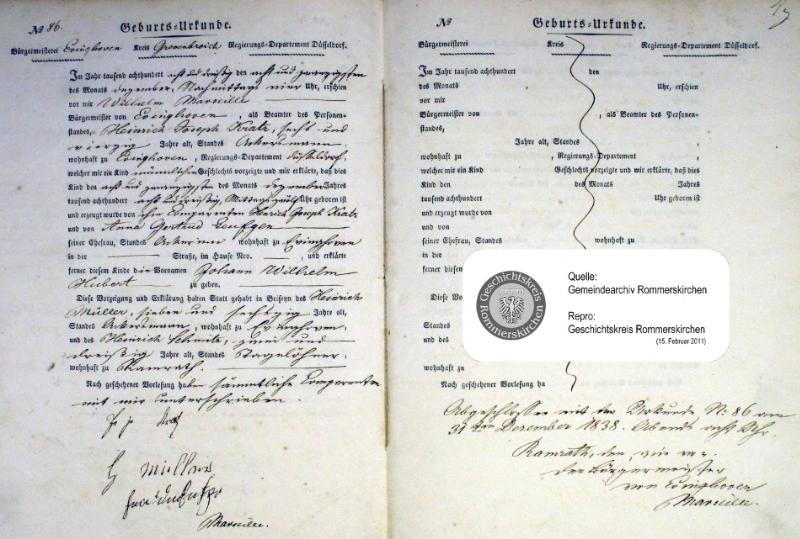 No 86.
Geburts-Urkunde.
Bürgermeisterei Evinghoven Kreis Grevenbroich Regierungs-Departement Düsseldorf.
Im Jahr tausend achthundert acht und dreißig den acht und zwanzigsten
des Monats Dezember, Nachmittags vier Uhr, erschien
vor mir Wilhelm Marseille
Bürgermeister von Evinghoven, als Beamter des Personen-
standes, Heinrich Joseph Kratz, sechs und
vierzig Jahre alt, Standes Ackersmann
wohnhaft zu Evinghoven, Regierungs-Departement Düsseldorf,
welcher mir ein Kind männlichen Geschlechts vorzeigte und mir erklärte, daß dies
Kind den acht und zwanzigsten des Monats Dezember Jahres
tausend achthundert acht und dreißig, Mittags zwölf Uhr geboren ist
und erzeugt wurde von ihm Comparenten Heinrich Joseph Kratz
und von Anna Gertrud Leuffgen
seiner Ehefrau, Standes Ackerinn wohnhaft zu Evinghoven
in der Straße, im Hause Nro. und erklärte
ferner diesem Kinde die Vornamen Johann Wilhelm
Hubert zu geben.
Diese Vorzeigung und Erklärung haben Statt gehabt in Beiseyn des Heinrich
Müller, sieben und sechzig Jahre alt,
Standes Ackersmann, wohnhaft zu Evinghoven
und des Heinrich Schmitz, zwei und
dreißig Jahre alt, Standes Tagelöhner
wohnhaft zu Ramrath.
Nach geschehener Vorlesung haben sämmtliche Comparenten
mit mir unterschrieben.
H. Müller
Marseille.
No
Geburts-Urkunde.
Bürgermeisterei Kreis Regierungs-Departement Düsseldorf.
Im Jahr tausend achthundert den
des Monats Uhr, erschien
vor mir
Bürgermeister von , als Beamter des Personen-
standes,
Jahre alt, Standes
wohnhaft zu , Regierungs-Departement ,
welcher mir ein Kind Geschlechts vorzeigte und mir erklärte, daß dies
Kind den des Monats Jahres
tausend achthundert Uhr geboren ist
und erzeugt wurde von
und von
seiner Ehefrau, Standes wohnhaft zu
in der
ferner diesem
Diese Vo
Standes
und des
wohnhaft zu
Nach geschehener Vorlesung ha
Abgeschlossen mit der Urkunde No 86 am
31ten Dezember 1838. Abends acht Uhr.
Ramrath, den
Der Bürgermeister
von Evinghoven
Marseille.
Geschichtskreis
Rommerskirchen
Quelle:
Gemeindearchiv Rommerskirchen
Repro:
Geschichtskreis Rommerskirchen
(15. Februar 2011)